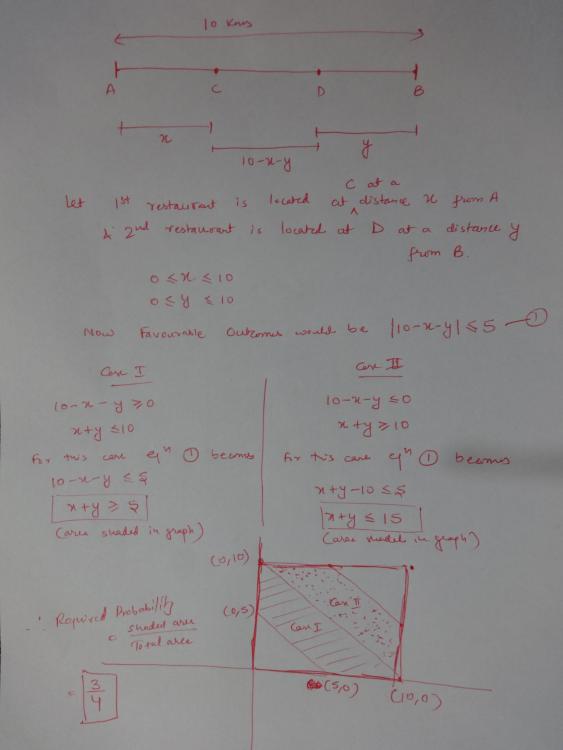 10 Kms
A C D B
x
10-x-y
y
C at a
Let 1st restaurant is located at ^ distance x from A
& 2nd restaurant is located at D at a distance y
from B.
0 ≤ x ≤ 10
0 ≤ y ≤ 10
Now Favourable Outcomes would be |10-x-y| ≤ 5 — ①
Case I
10-x-y ≥ 0
x+y ≤ 10
For this case eqn ① becomes
10-x-y ≤ 5
x+y ≥ 5
(area shaded in graph)
Case II
10-x-y ≤ 0
x+y ≥ 10
For this case eqn ① becomes
x+y-10 ≤ 5
x+y ≤ 15
(area shaded in graph)
(0,10)
(0,5)
Case II
Case I
(5,0)
(10,0)
∴ Required Probability
= shaded area
Total area
= 3
4